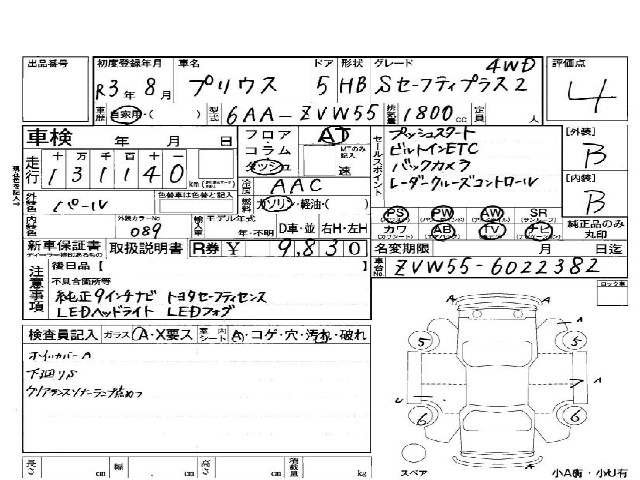 出品番号 初度登録年月 車名 ドア 形状 グレード 評価点
R3年8月 プリウス 5 HB 4WD
Sセーフティプラス2
4
車歴 自家用・( ) 型式 6AA-ZVW55 排気量 1800cc 定員 人
車検 年 月 日
フロア・コラム ダッシュ AT MTのみ記入 速
セールスポイント
プッシュスタート
ビルトインETC
バックカメラ
レーダークルーズコントロール
[外装]
B
[内装]
B
走行 十 万 千 百 十 一
131140 km
冷房 AAC
外装色 パール 色替車は色替と記入
燃料 ガソリン・軽油・( )
内装色 外装カラーNo 089
輸入車 モデル年式 年・不明 D車・並 右H・左H
PS PW AW SR
カワ AB TV ナビ
純正品のみ丸印
新車保証書 取扱説明書 R券 ¥ 9,830
名変期限 月 日迄
車台No. ZVW55-6022382
注意事項
後日品 [ ]
不具合箇所等
純正9インチナビ トヨタセーフティセンス
LEDヘッドライト LEDフォグ
ロック車
検査員記入 ガラス A・X要ス 室内シート A・コゲ・穴・汚れ・破れ
オイルカバーA
下回りS
5 5
6 6
A A A U 7
スペア
小A有・小U有
長さ cm 幅 cm 高さ cm 積載量 kg